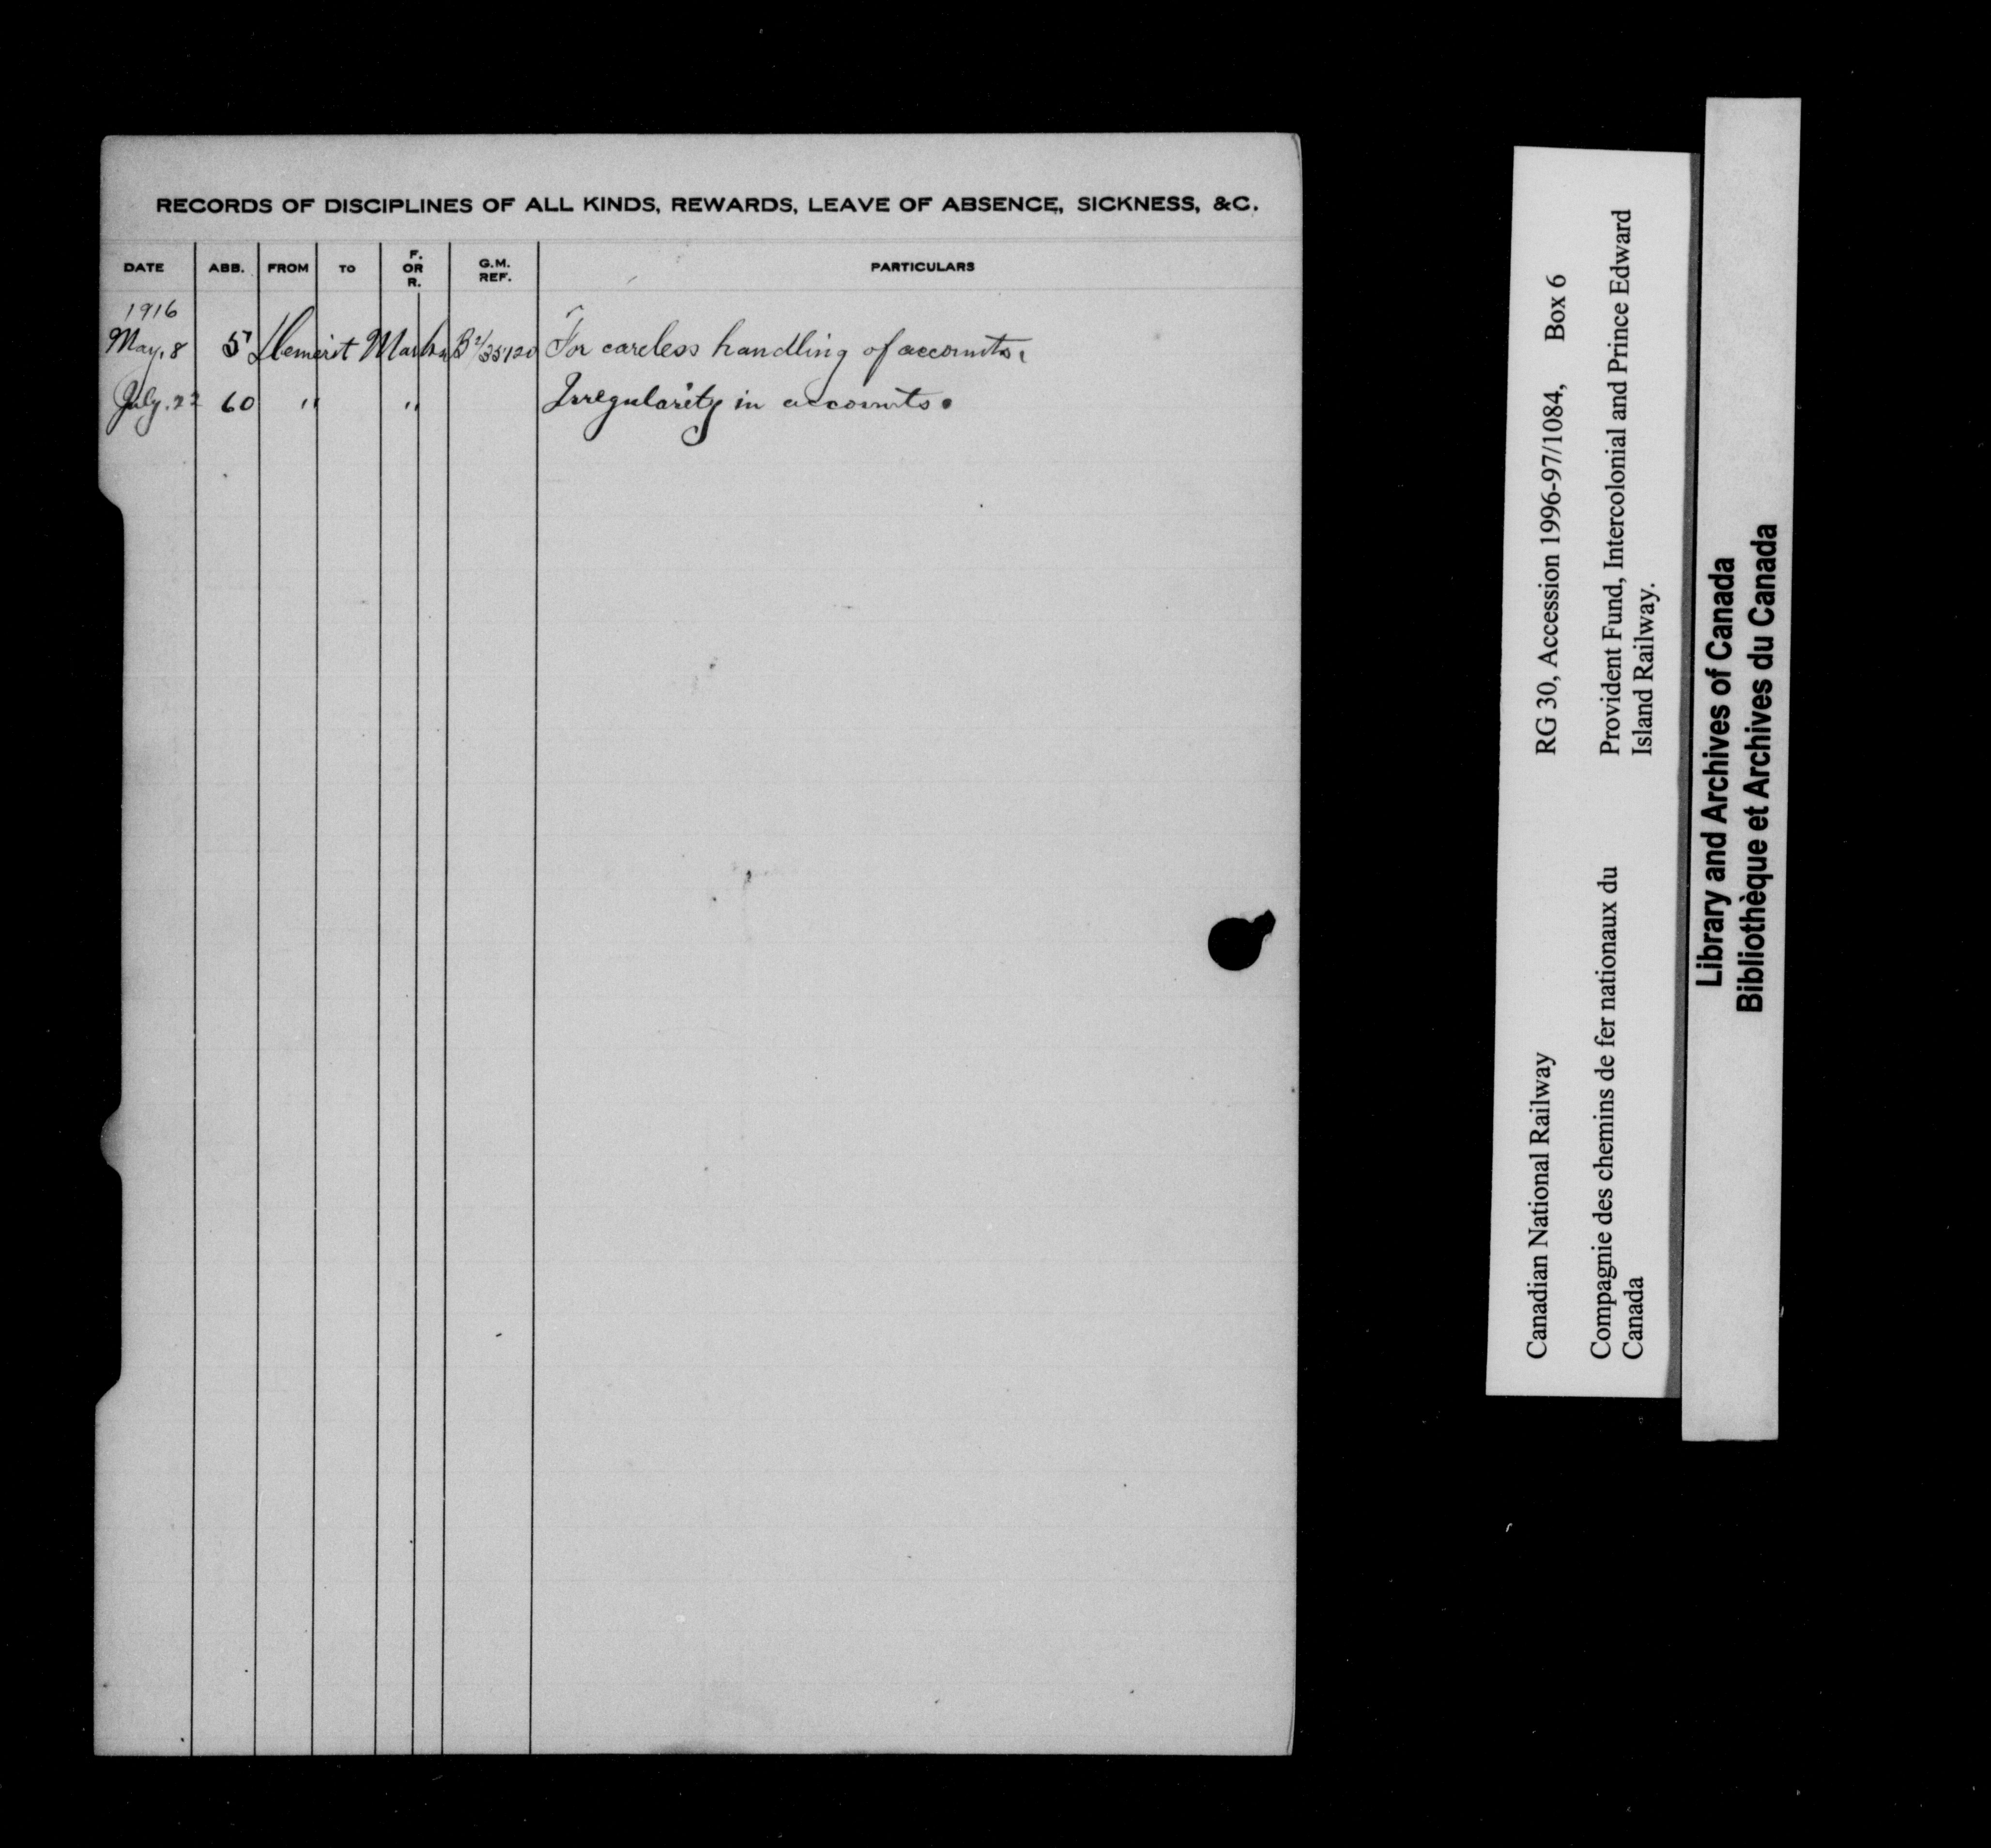 RECORDS OF DISCIPLINES OF ALL KINDS, REWARDS, LEAVE OF ABSENCE, SICKNESS, &C.
DATE ABB. FROM TO F. OR R. G.M. REF. PARTICULARS
1916
May. 8 5 Demerit Marks For careless handling of accounts.
July. 22 60 " " Irregularity in accounts.
RG 30, Accession 1996-97/1084, Box 6
Provident Fund, Intercolonial and Prince Edward
Island Railway.
Canadian National Railway
Compagnie des chemins de fer nationaux du
Canada
Library and Archives of Canada
Bibliothèque et Archives du Canada